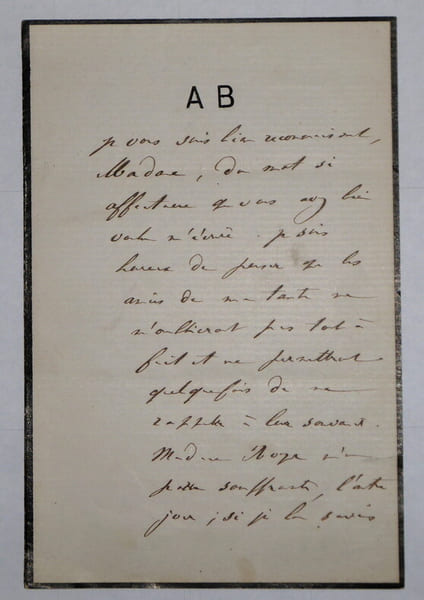 A B
je vous suis bien reconnaissant,
Madame, du mot si
affectueux que vous avez bien
voulu m'écrire. je suis
heureux de penser que les
amis de ma tante ne
m'oublieront pas tout à
fait et me permettront
quelquefois de me
rappeler à leur souvenir.
Madame m'a
paru souffrante, l'autre
jour ; si je la savais